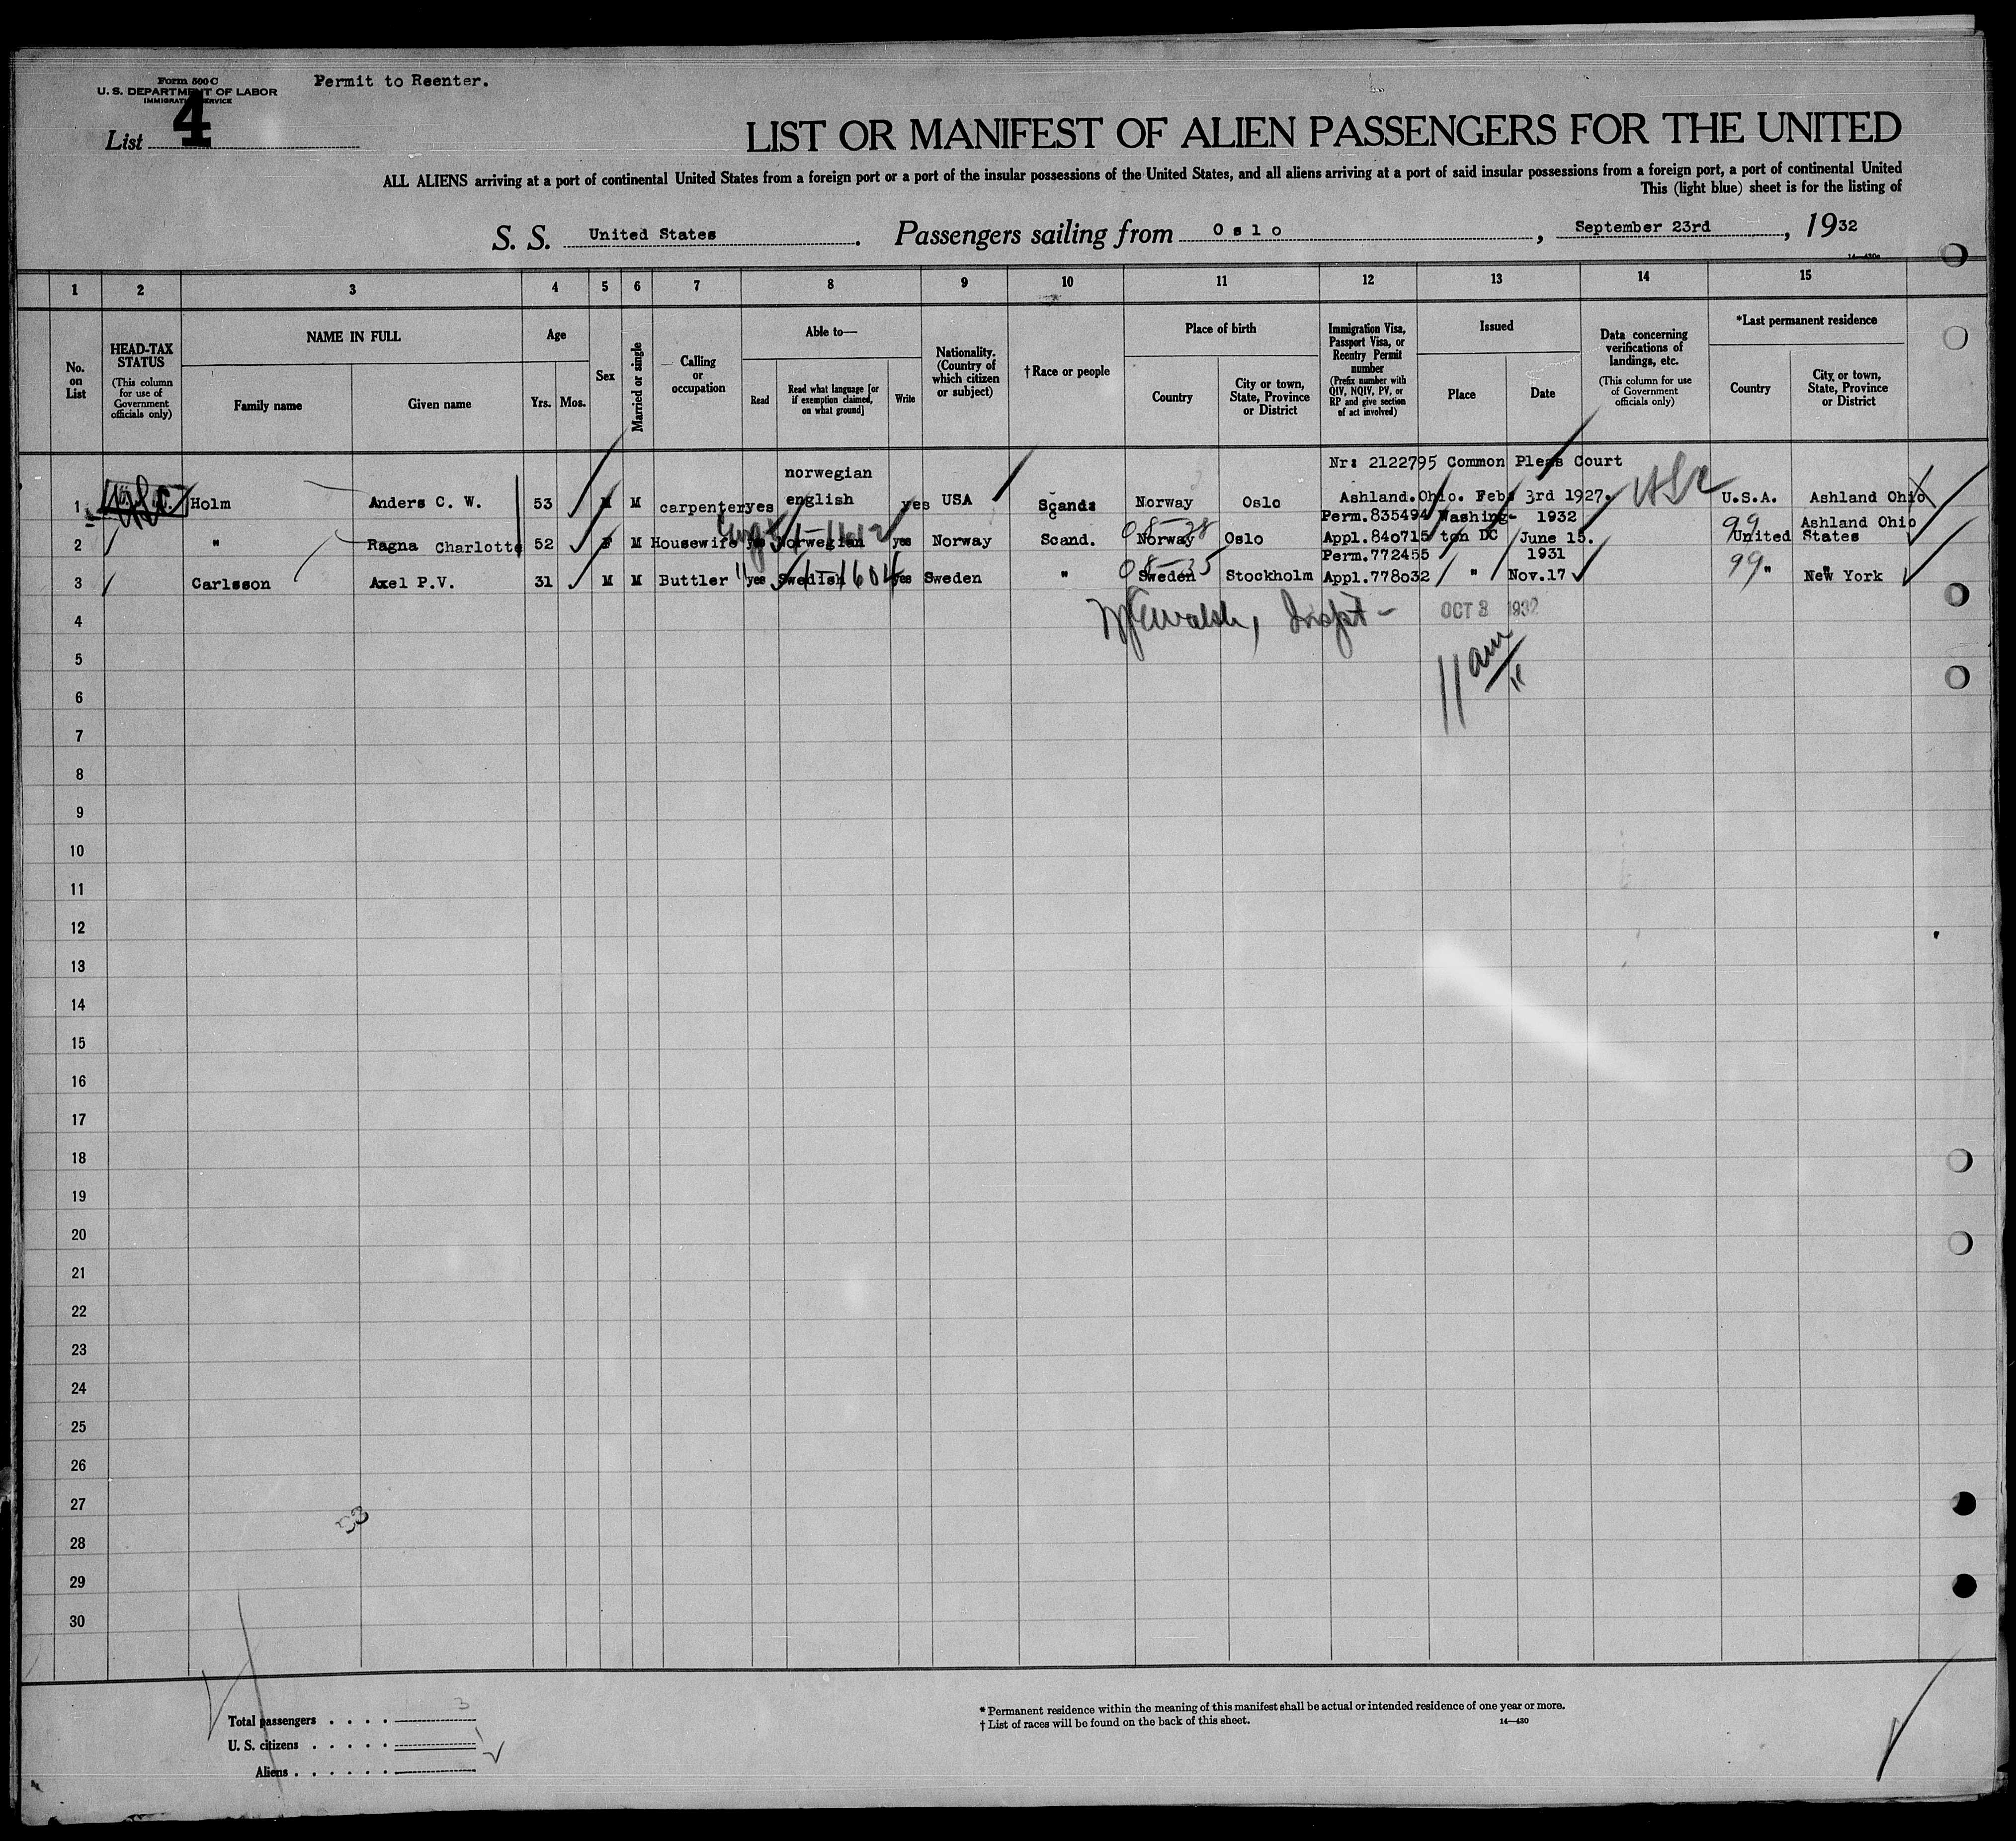 Form 500 C
U. S. DEPARTMENT OF LABOR
IMMIGRATION SERVICE
Permit to Reenter.
List 4
LIST OR MANIFEST OF ALIEN PASSENGERS FOR THE UNITED
ALL ALIENS arriving at a port of continental United States from a foreign port or a port of the insular possessions of the United States, and all aliens arriving at a port of said insular possessions from a foreign port, a port of continental United
This (light blue) sheet is for the listing of
S. S. United States. Passengers sailing from Oslo, September 23rd, 1932
14—430a
1 2 3 4 5 6 7 8 9 10 11 12 13 14 15
No. on List
HEAD-TAX STATUS
(This column for use of Government officials only)
NAME IN FULL
Family name
Given name
Age
Yrs.
Mos.
Sex
Married or single
Calling or occupation
Able to—
Read
Read what language [or if exemption claimed, on what ground]
Write
Nationality. (Country of which citizen or subject)
†Race or people
Place of birth
Country
City or town, State, Province or District
Immigration Visa, Passport Visa, or Reentry Permit number
(Prefix number with QIV, NQIV, PV, or RP and give section of act involved)
Issued
Place
Date
Data concerning verifications of landings, etc.
(This column for use of Government officials only)
*Last permanent residence
Country
City or town, State, Province or District
norwegian Nr: 2122795 Common Pleas Court
1 Holm Anders C. W. 53 M M carpenter yes english yes USA Scand: Norway Oslo Ashland.Ohio. Feb. 3rd 1927. U.S.A. Ashland Ohio
Perm.835494 Washing- 1932 Ashland Ohio
2 " Ragna Charlotte 52 F M Housewife yes Norwegian yes Norway Scand. Norway Oslo Appl.840715 ton DC June 15. United States
08-28
99
Perm.772455 1931
3 Carlsson Axel P.V. 31 M M Buttler yes Swedish yes Sweden " Sweden Stockholm Appl.778032 " Nov.17 " New York
08-35
99
4 OCT 3 1932
5 11 am
6
7
8
9
10
11
12
13
14
15
16
17
18
19
20
21
22
23
24
25
26
27
28
29
30
Total passengers . . . . 3
U. S. citizens . . . . . 1
Aliens . . . . . . 2
* Permanent residence within the meaning of this manifest shall be actual or intended residence of one year or more.
† List of races will be found on the back of this sheet.
14—430